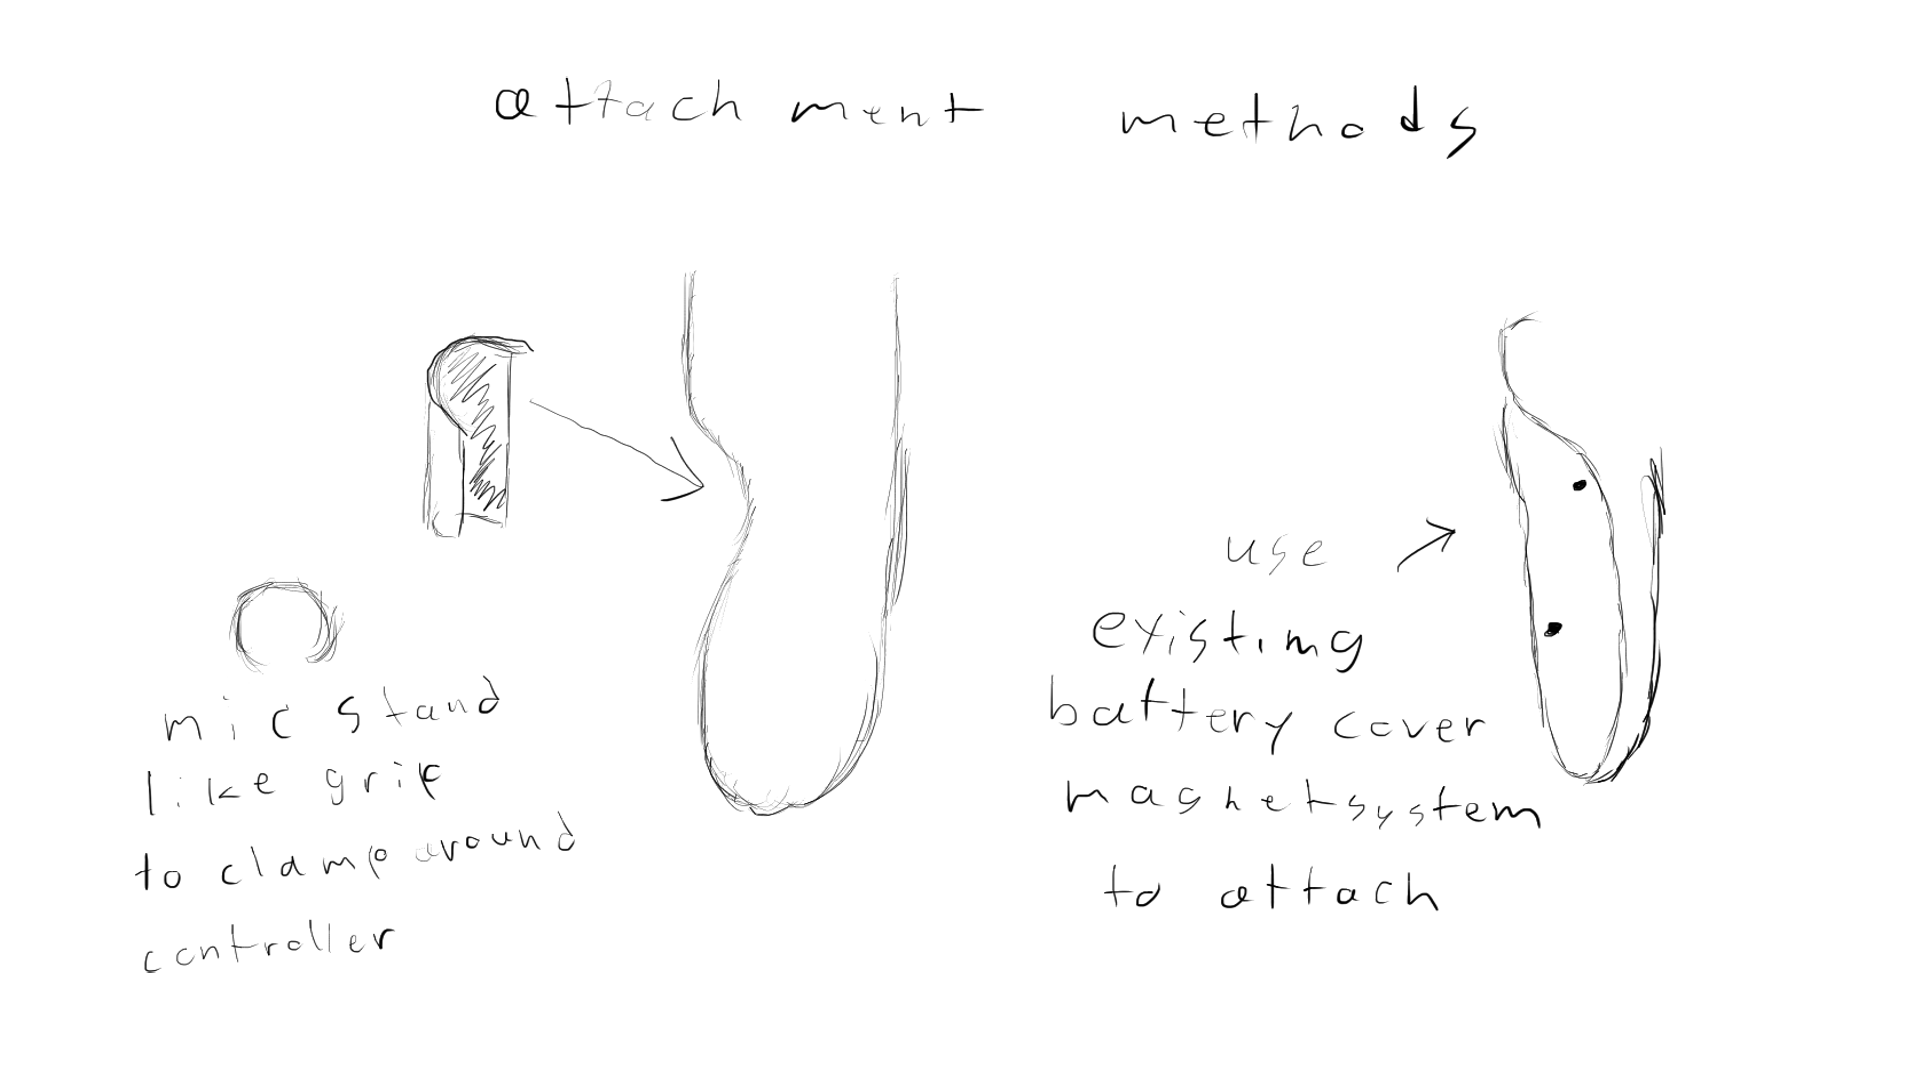 attachment methods
mic stand
like grip
to clamp around
controller
use
existing
battery cover
magnet system
to attach